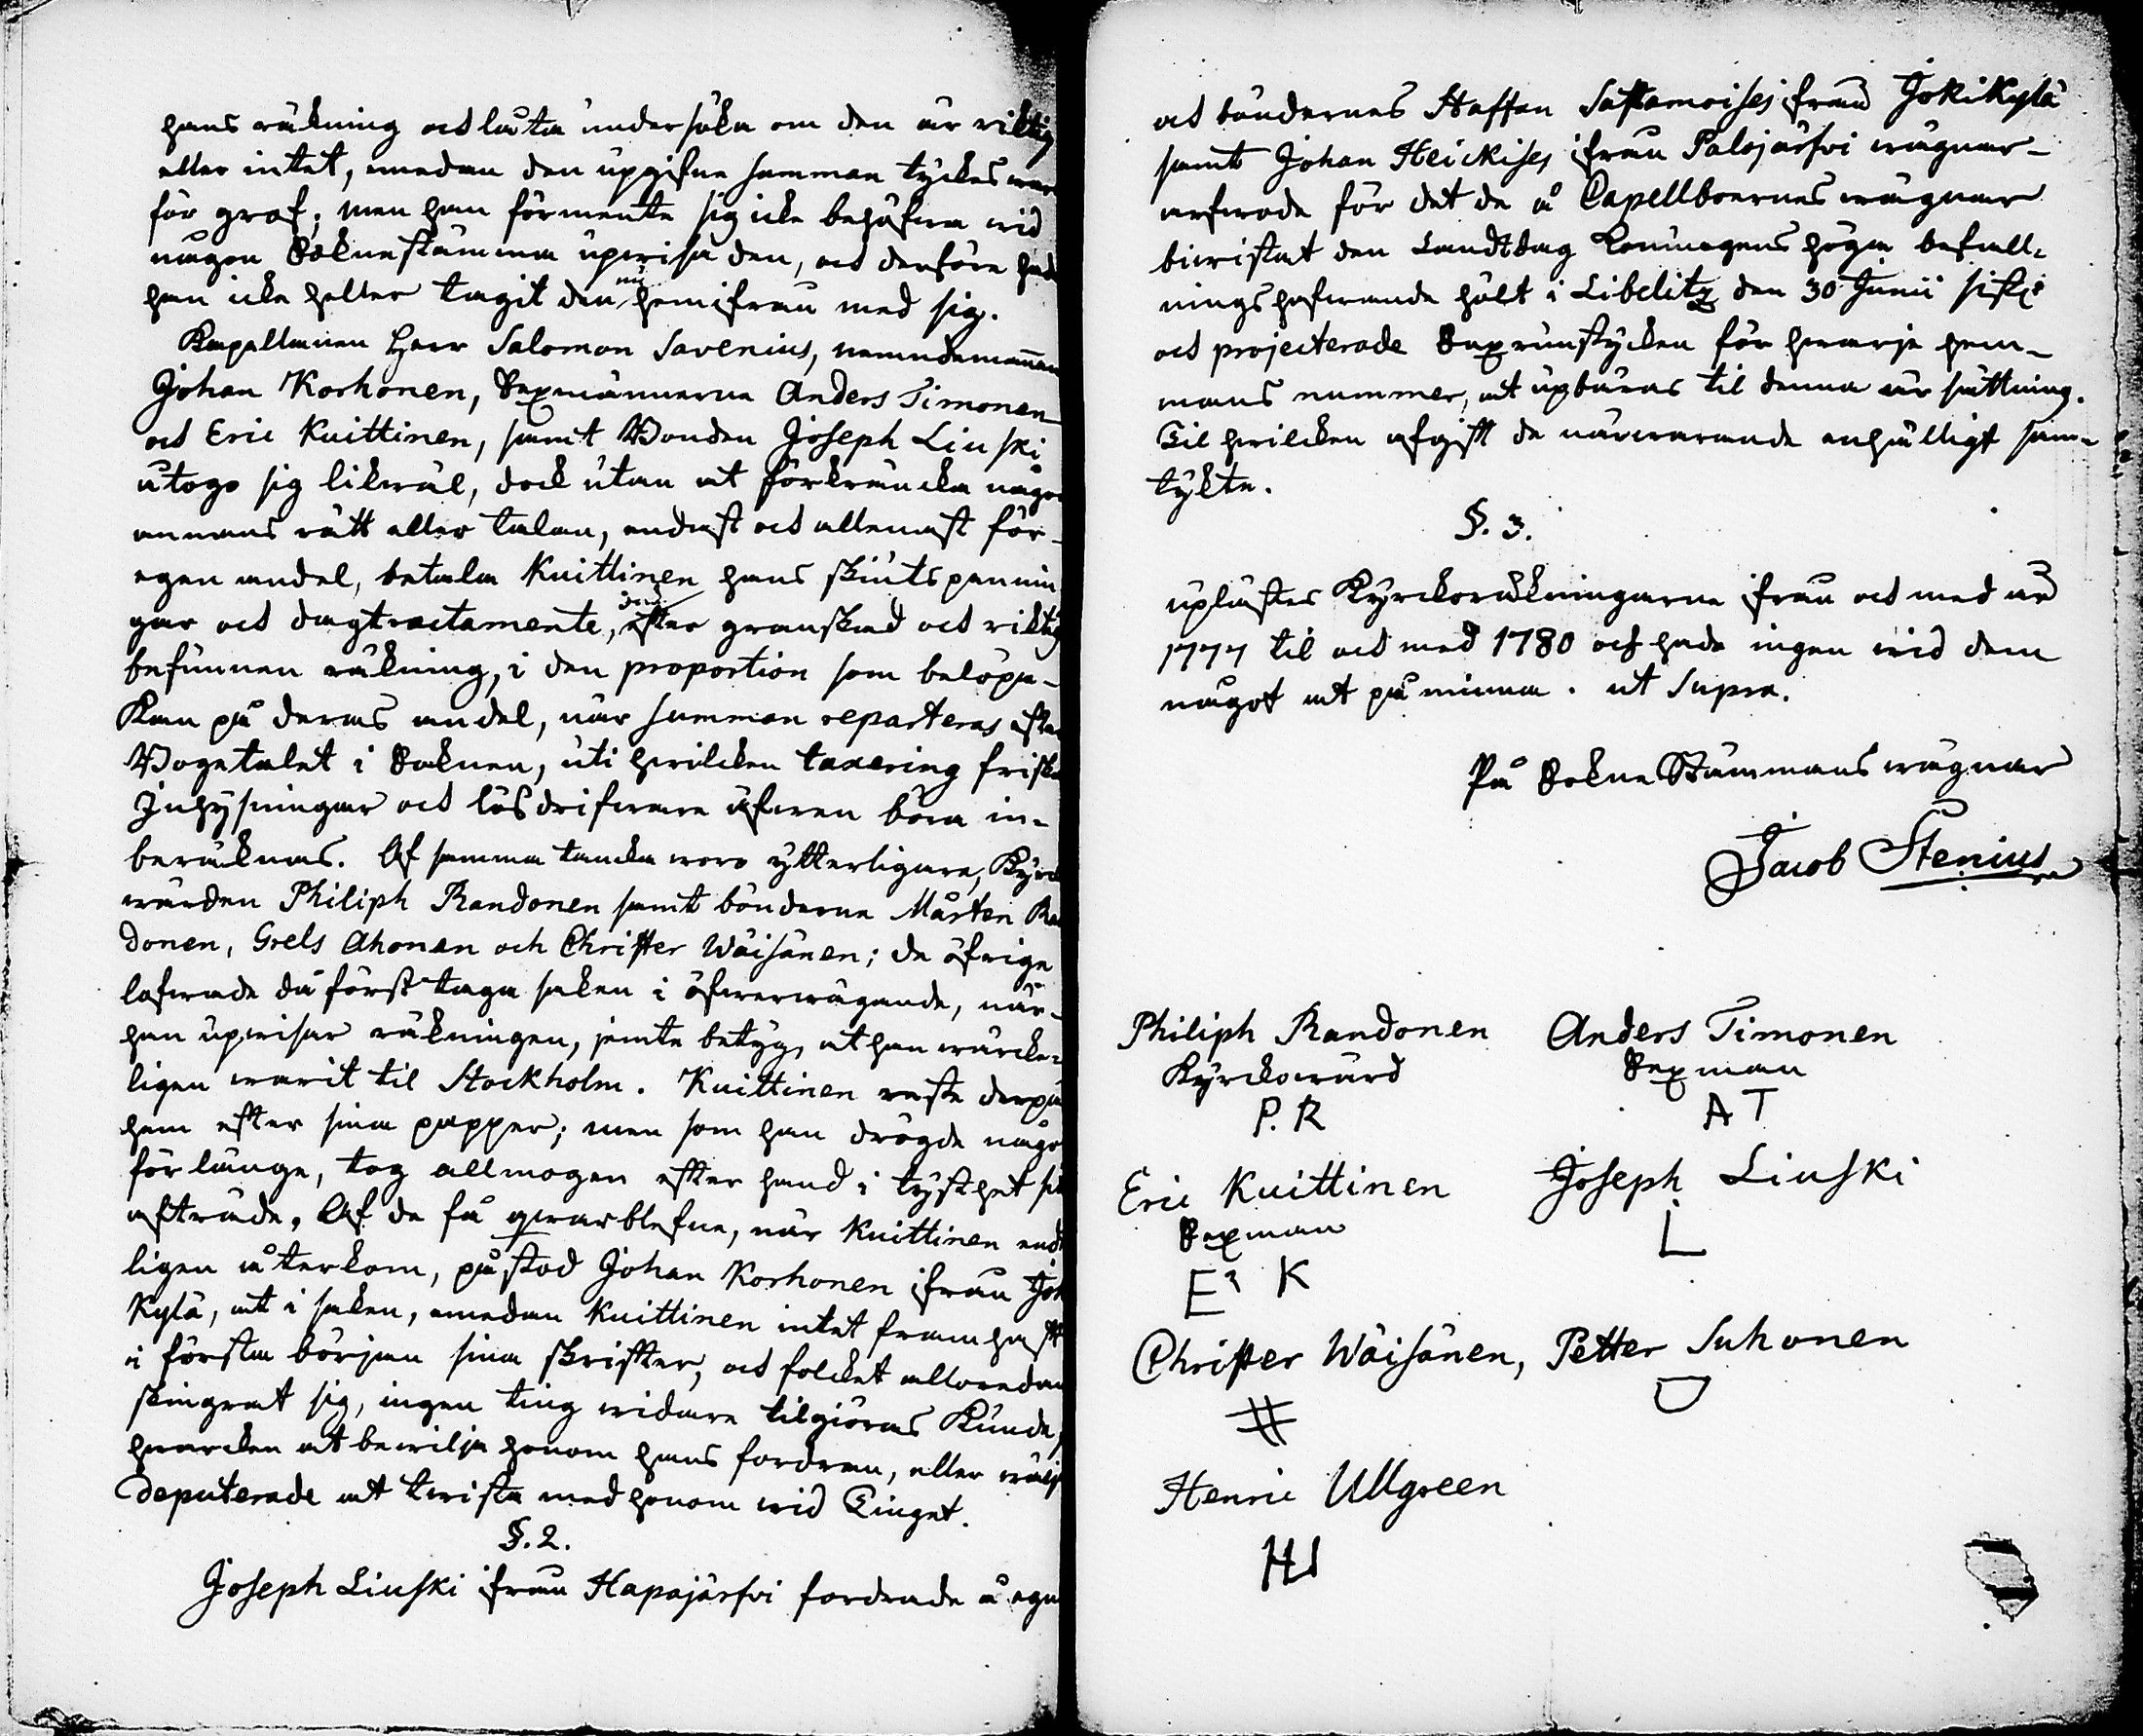 hans räkning och låta undersöka om den är riktig
eller intet, medan den upgifne summan tyckes wara
för grof; men han förmente sig icke behöfwa wid
någon Soknestämma upwisa den, och derföre hade
han icke heller tagit den nu hemifrån med sig.
Kapellanen Herr Salomon Savenius, nemndemannen
Johan Korhonen, Sexmännerne Anders Timonen
och Eric Kuittinen, samt Bonden Joseph Liuski
utogo sig likwäl, dock utan at förkräncka någon
annans rätt eller talan, endast och allenast för
egen andel, betala Kuittinen hans skiutspennin
gar och dagtractamente, efter granskad och riktig
befunnen räkning, i den proportion som belöpa
kan på deras andel, när summan reparteras efter
Bogetalet i Soknen, uti hwilcken taxering friska
Inhysningar och lösdrifware äfwen böra in-
beräcknas. Af samma tancka woro ytterligare, Kyrck
wärden Philiph Randonen samt bönderne Mårten Ran
donen, Grels Ahonen och Christer Wäisänen; de öfrige
lofwade då först taga saken i öfwerwägande, när
han upwisar räkningen, jemte betyg, at han wärcke-
ligen warit til Stockholm. Kuittinen reste derpå
hem efter sina papper; men som han drögde något
för länge, tog allmogen efter hand i tysthet sit
afträde. Af de få qwarblefne, när Kuittinen endt
ligen återkom, påstod Johan Korhonen ifrån Joki
Kylä, at i saken, emedan Kuittinen intet framhaft
i första början sina skrifter, och folcket alloredan
skingrat sig, ingen ting widare tilgiöras kunde,
hwarcken at bewilja honom hans fordran, eller wälja
deputerade at twista med honom wid Tinget.
§. 2.
Joseph Liuski ifrån Hapajärfvi fordrade å egna
och böndernes Staffan Sastamoises ifrån Jokikylä
samt Johan Heickises ifrån Palojärfvi wägnar
arfwode för det de å Capellboernes wägnar
biwistat den Landtdag Konungens höga befall-
ningshafwande hölt i Libelitz den 30 Junii sistl.
och projecterade Sex runstycken för hwarje hem-
mans nummer, at upbäras til denna ersättning.
Til hwilcken afgift de närwarande enhälligt sam-
tykte.
§. 3.
uplästes Kyrckoräkningarne ifrån och med år
1777 til och med 1780 och hade ingen wid dem
något at påminna. ut Supra.
På Sokne Stämmans wägnar
Jacob Stenius
Philiph Randonen Anders Timonen
Kyrckowärd Sexman
P. R A T
Eric Kuittinen Joseph Liuski
Sexman L
E K
Christer Wäisänen, Petter Suhonen
Henric Ullgreen
HU